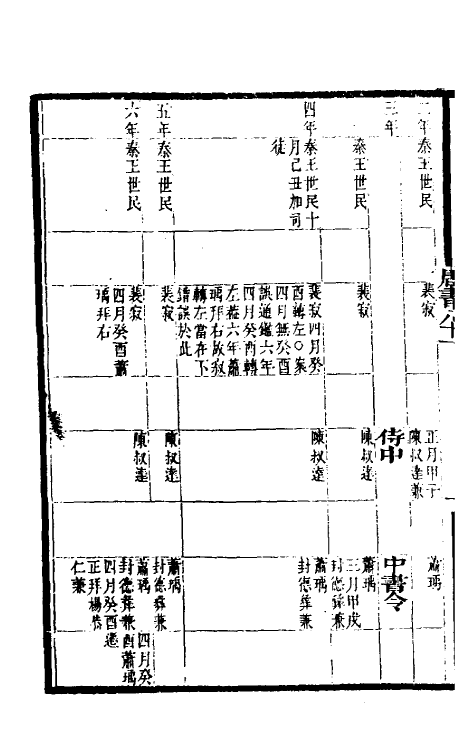 二年
秦王世民
裴寂
正月甲子
陳叔達兼
蕭瑀
唐書六十一
三年
侍中
中書令
秦王世民
裴寂
陳叔達
蕭瑀
三月甲戌
封德彝兼
四年
秦王世民十
月己丑加司
徒
裴寂四月癸
酉轉左〇案
四月無癸酉
誤通鑑六年
四月癸酉轉
左蓋六年蕭
瑀拜右故寂
轉左當在下
錯誤於此
陳叔達
蕭瑀
封德彝兼
五年
秦王世民
裴寂
陳叔達
蕭瑀
封德彝兼
六年
秦王世民
裴寂
四月癸酉蕭
瑀拜右
陳叔達
蕭瑀 四月癸
封德彝兼酉蕭瑀
四月癸酉遷
正拜楊恭
仁兼